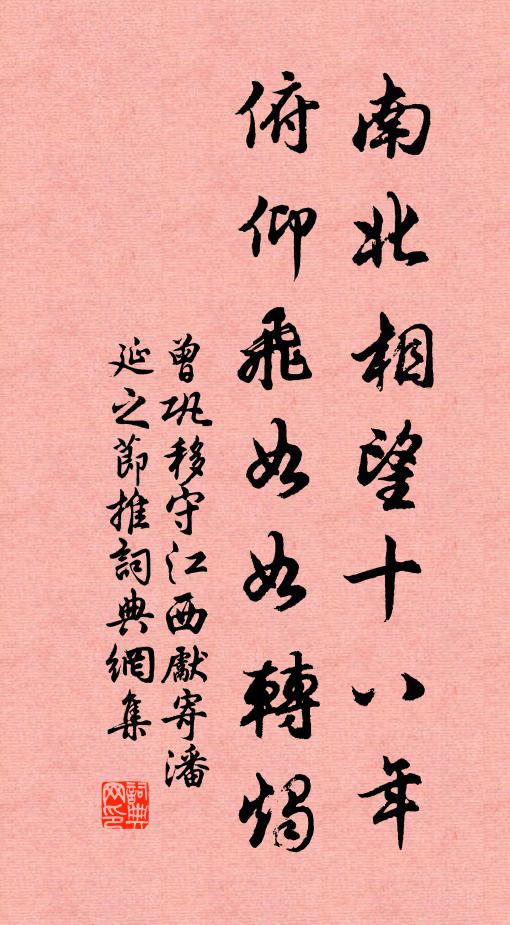 南北相望十八年
俯仰飛如如轉燭
曾巩移守江西獻寄潘
延之節推詞典網集
詞典
网印